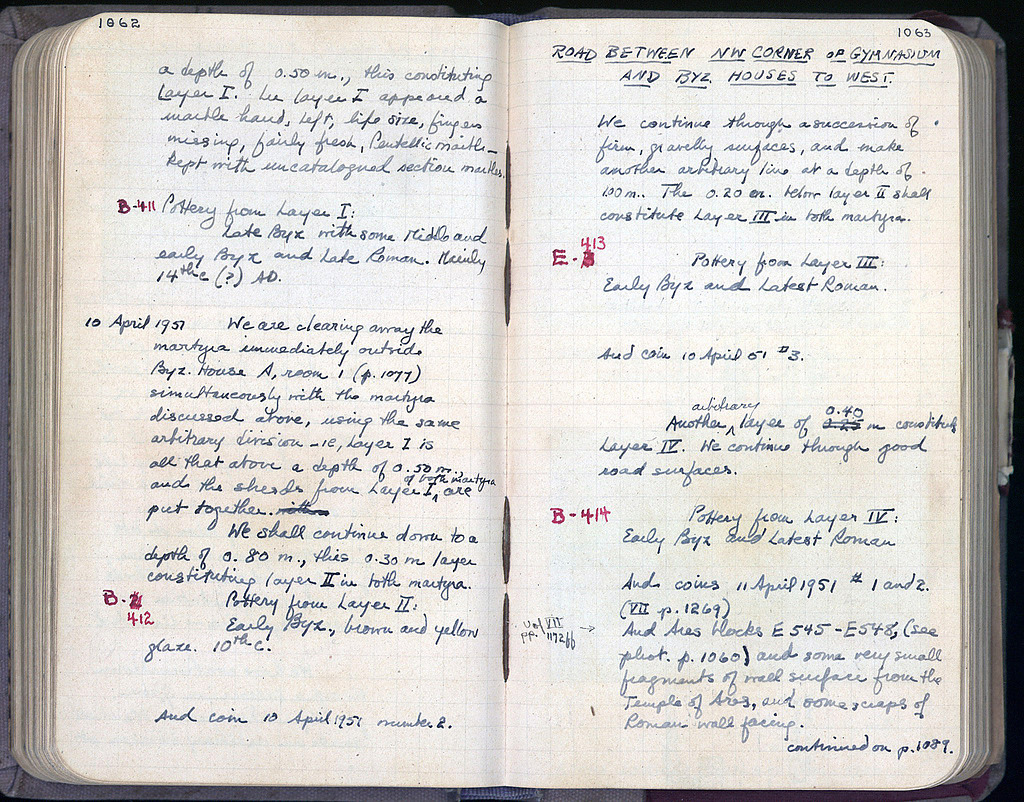 1062
a depth of 0.50 m., this constituting
Layer I. In layer I appeared a
marble hand, left, life size, fingers
missing, fairly fresh, Pentellic marble –
kept with uncatalogued section marbles.
B-411 Pottery from Layer I:
Late Byz with some Middle and
early Byz and Late Roman. Mainly
14th c (?) AD.
10 April 1951 We are clearing away the
martyra immediately outside
Byz. House A, room 1 (p. 1077)
simultaneously with the martyra
discussed above, using the same
arbitrary division – ie, Layer I is
all that above a depth of 0.50 m.,
of both martyra
and the sherds from Layer I, are
put together.
We shall continue down to a
depth of 0.80 m., this 0.30 m layer
constituting layer II in both martyra.
B-
412
Pottery from Layer II:
Early Byz., brown and yellow
glaze. 10th c.
And coin 10 April 1951 number 2.
1063
ROAD BETWEEN NW CORNER OF GYMNASIUM
AND BYZ HOUSES TO WEST.
We continue through a succession of
firm, gravelly surfaces, and make
another arbitrary line at a depth of
1.00 m. The 0.20 m. below layer II shall
constitute Layer III in both martyra.
413
E-
Pottery from Layer III:
Early Byz and Latest Roman.
And coin 10 April 51 #3.
arbitrary 0.40
Another layer of 0.25 m constitutes
Layer IV. We continue through good
road surfaces.
B-414 Pottery from Layer IV:
Early Byz and Latest Roman
And coins 11 April 1951 # 1 and 2.
(VII p. 1269)
VII
pp. →
And Ares blocks E 545 – E 548, (see
phot. p. 1060) and some very small
fragments of wall surface from the
Temple of Ares, and some scraps of
Roman wall facing.
continued on p. 1089.